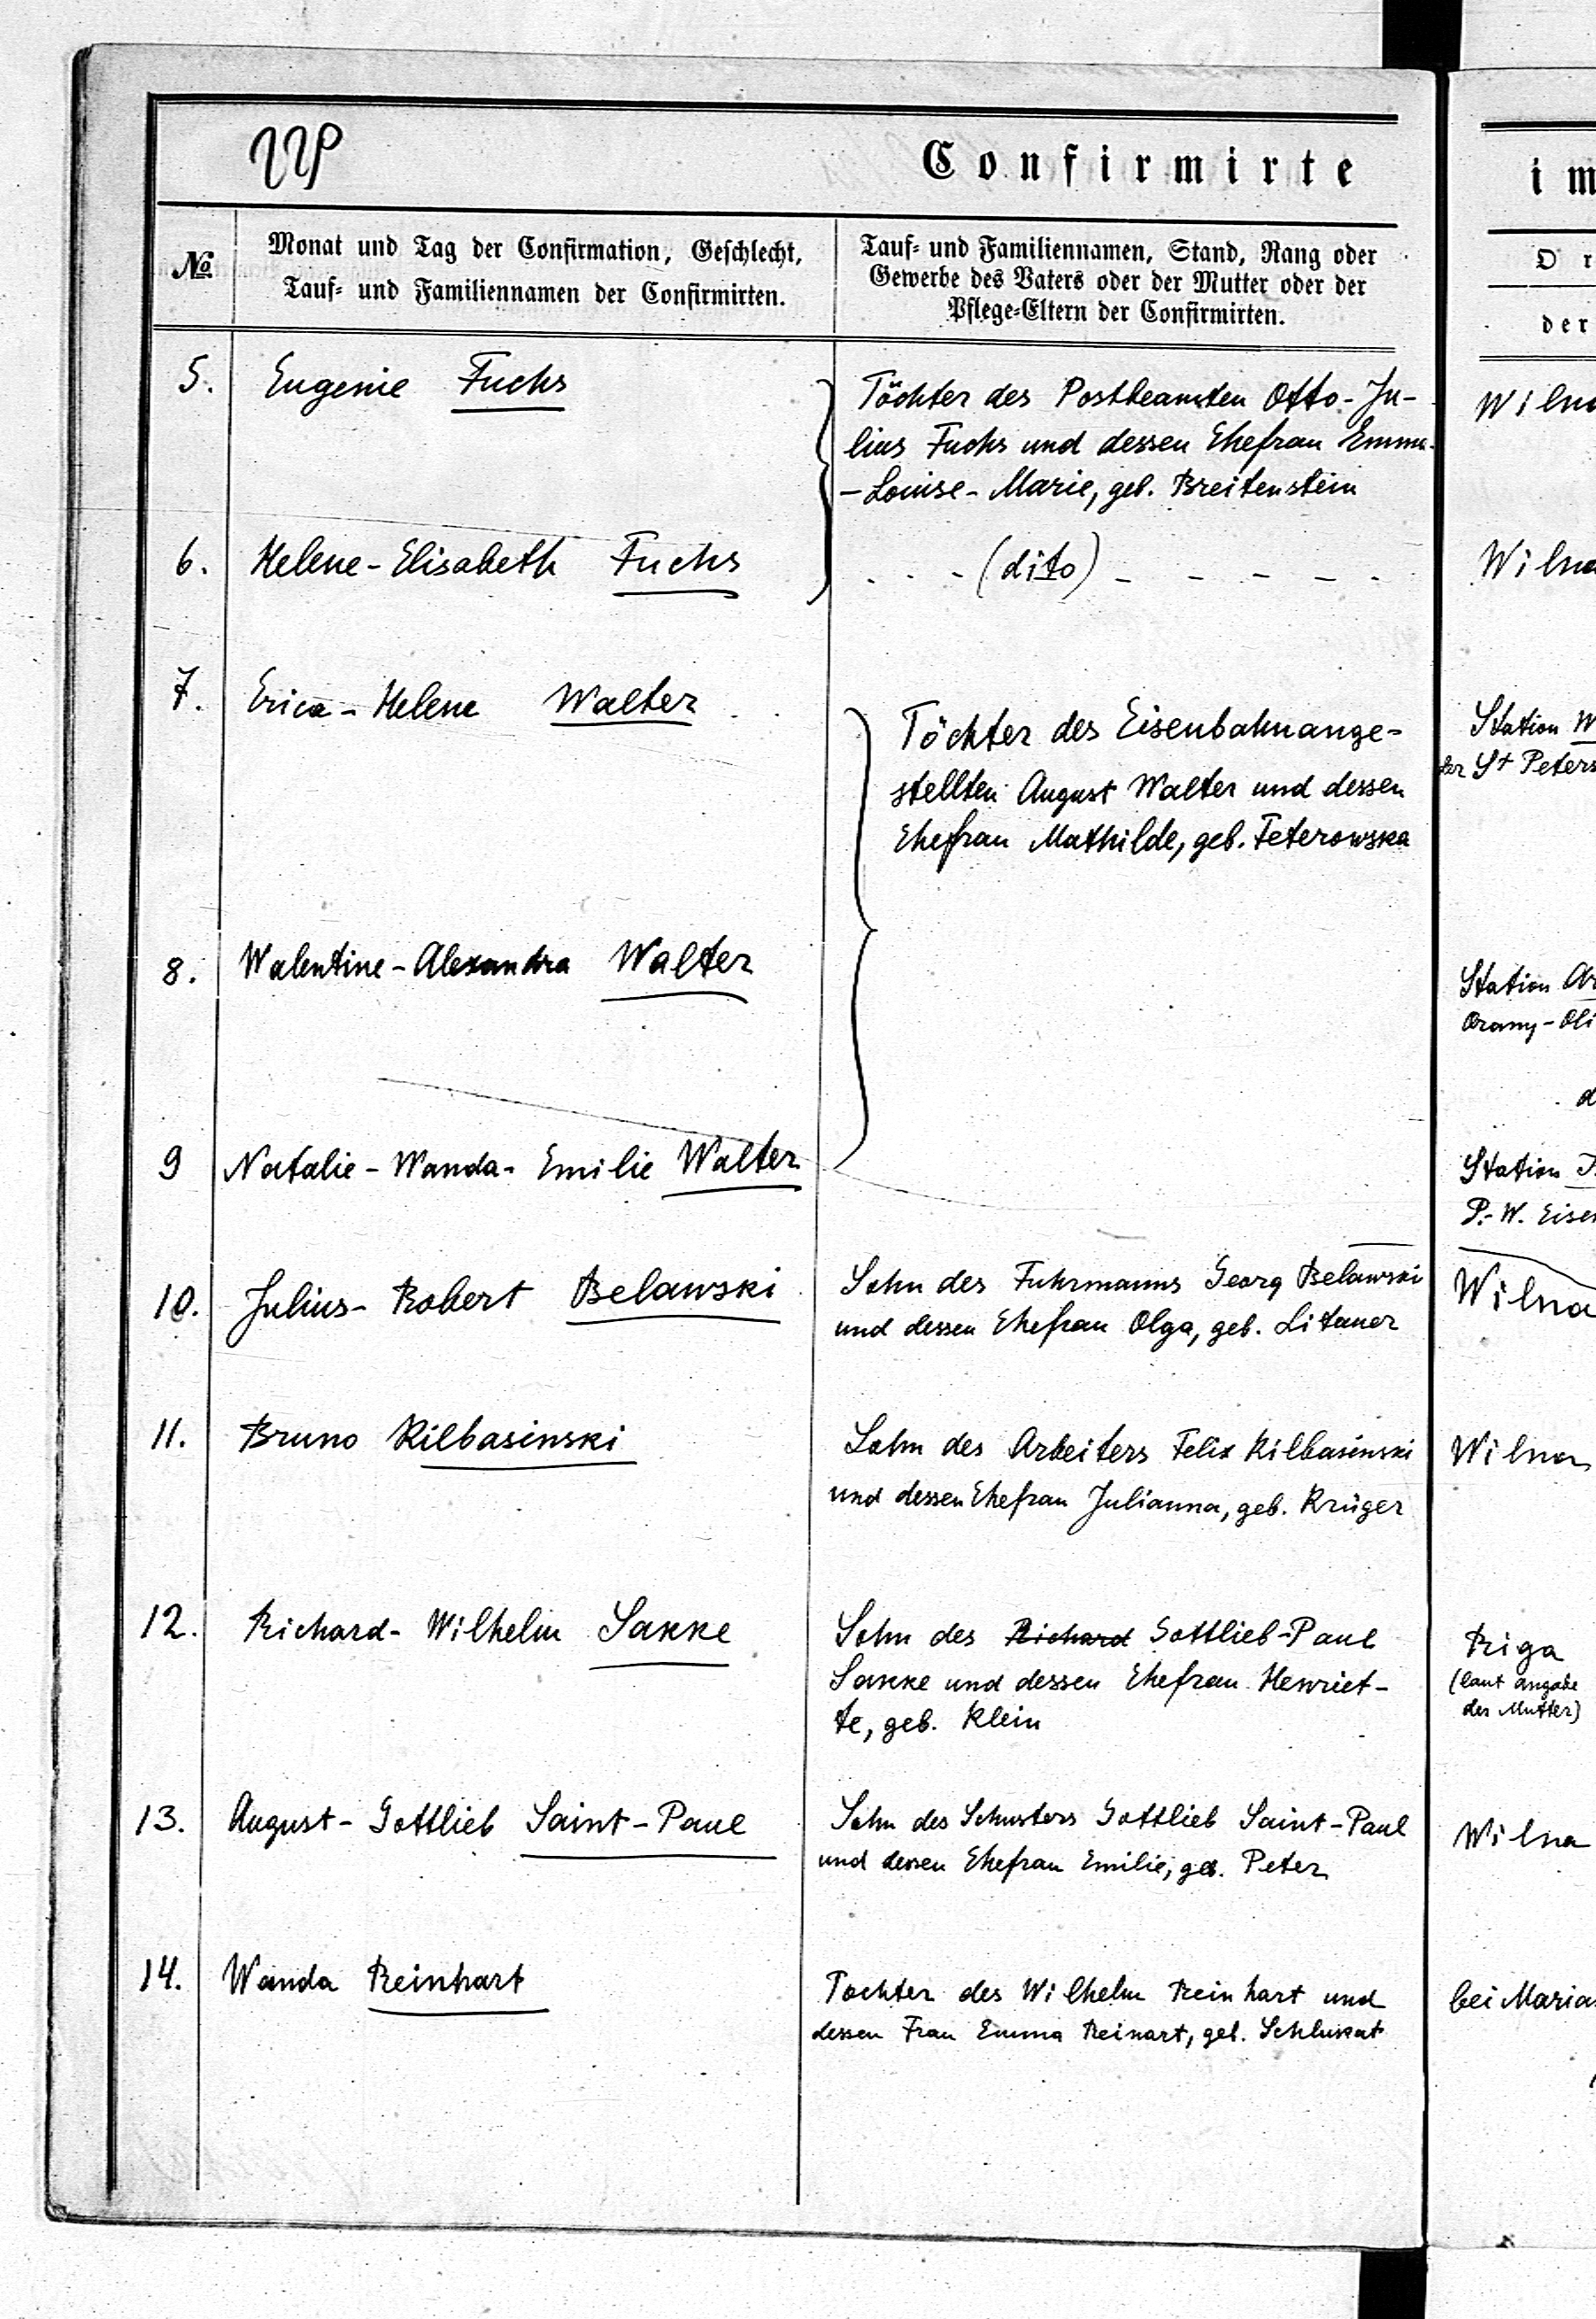 Confirmirte
im
No
Monat und Tag der Confirmation, Geschlecht,
Tauf- und Familiennamen der Confirmirten.
Tauf- und Familiennamen, Stand, Rang oder
Gewerbe des Vaters oder der Mutter oder der
Pflege-Eltern der Confirmirten.
der
5. Eugenie Fuchs
Töchter des Postbeamten Otto-Ju-
lius Fuchs und dessen Ehefrau Emma-
-Louise-Marie, geb. Breitenstein
6. Helene-Elisabeth Fuchs
- - - (dito) - - - - -
Wilna
7. Erica-Helene Walter
Töchter des Eisenbahnange-
stellten August Walter und dessen
Ehefrau Mathilde, geb. Feterowska
Station
der St Peters
8. Walentine-Alexandra Walter
Station
Orany-Oli
9 Natalie-Wanda-Emilie Walter
Station
P.-W. Eisen
10. Julius-Robert Belawski
Sohn des Fuhrmanns Georg Belawski
und dessen Ehefrau Olga, geb. Litauer
Wilna
11. Bruno Kilbasinski
Sohn des Arbeiters Felix Kilbasinski
und dessen Ehefrau Julianna, geb. Krüger
Wilna
12. Richard-Wilhelm Sakke
Sohn des Richard Gottlieb-Paul
Sakke und dessen Ehefrau Henriet-
te, geb. Klein
Riga
(laut Angabe
der Mutter)
13. August-Gottlieb Saint-Paul
Sohn des Schusters Gottlieb Saint-Paul
und dessen Ehefrau Emilie, geb. Peter
Wilna
14. Wanda Reinhart
Tochter des Wilhelm Reinhart und
dessen Frau Emma Reinart, geb. Schluskat
bei Maria